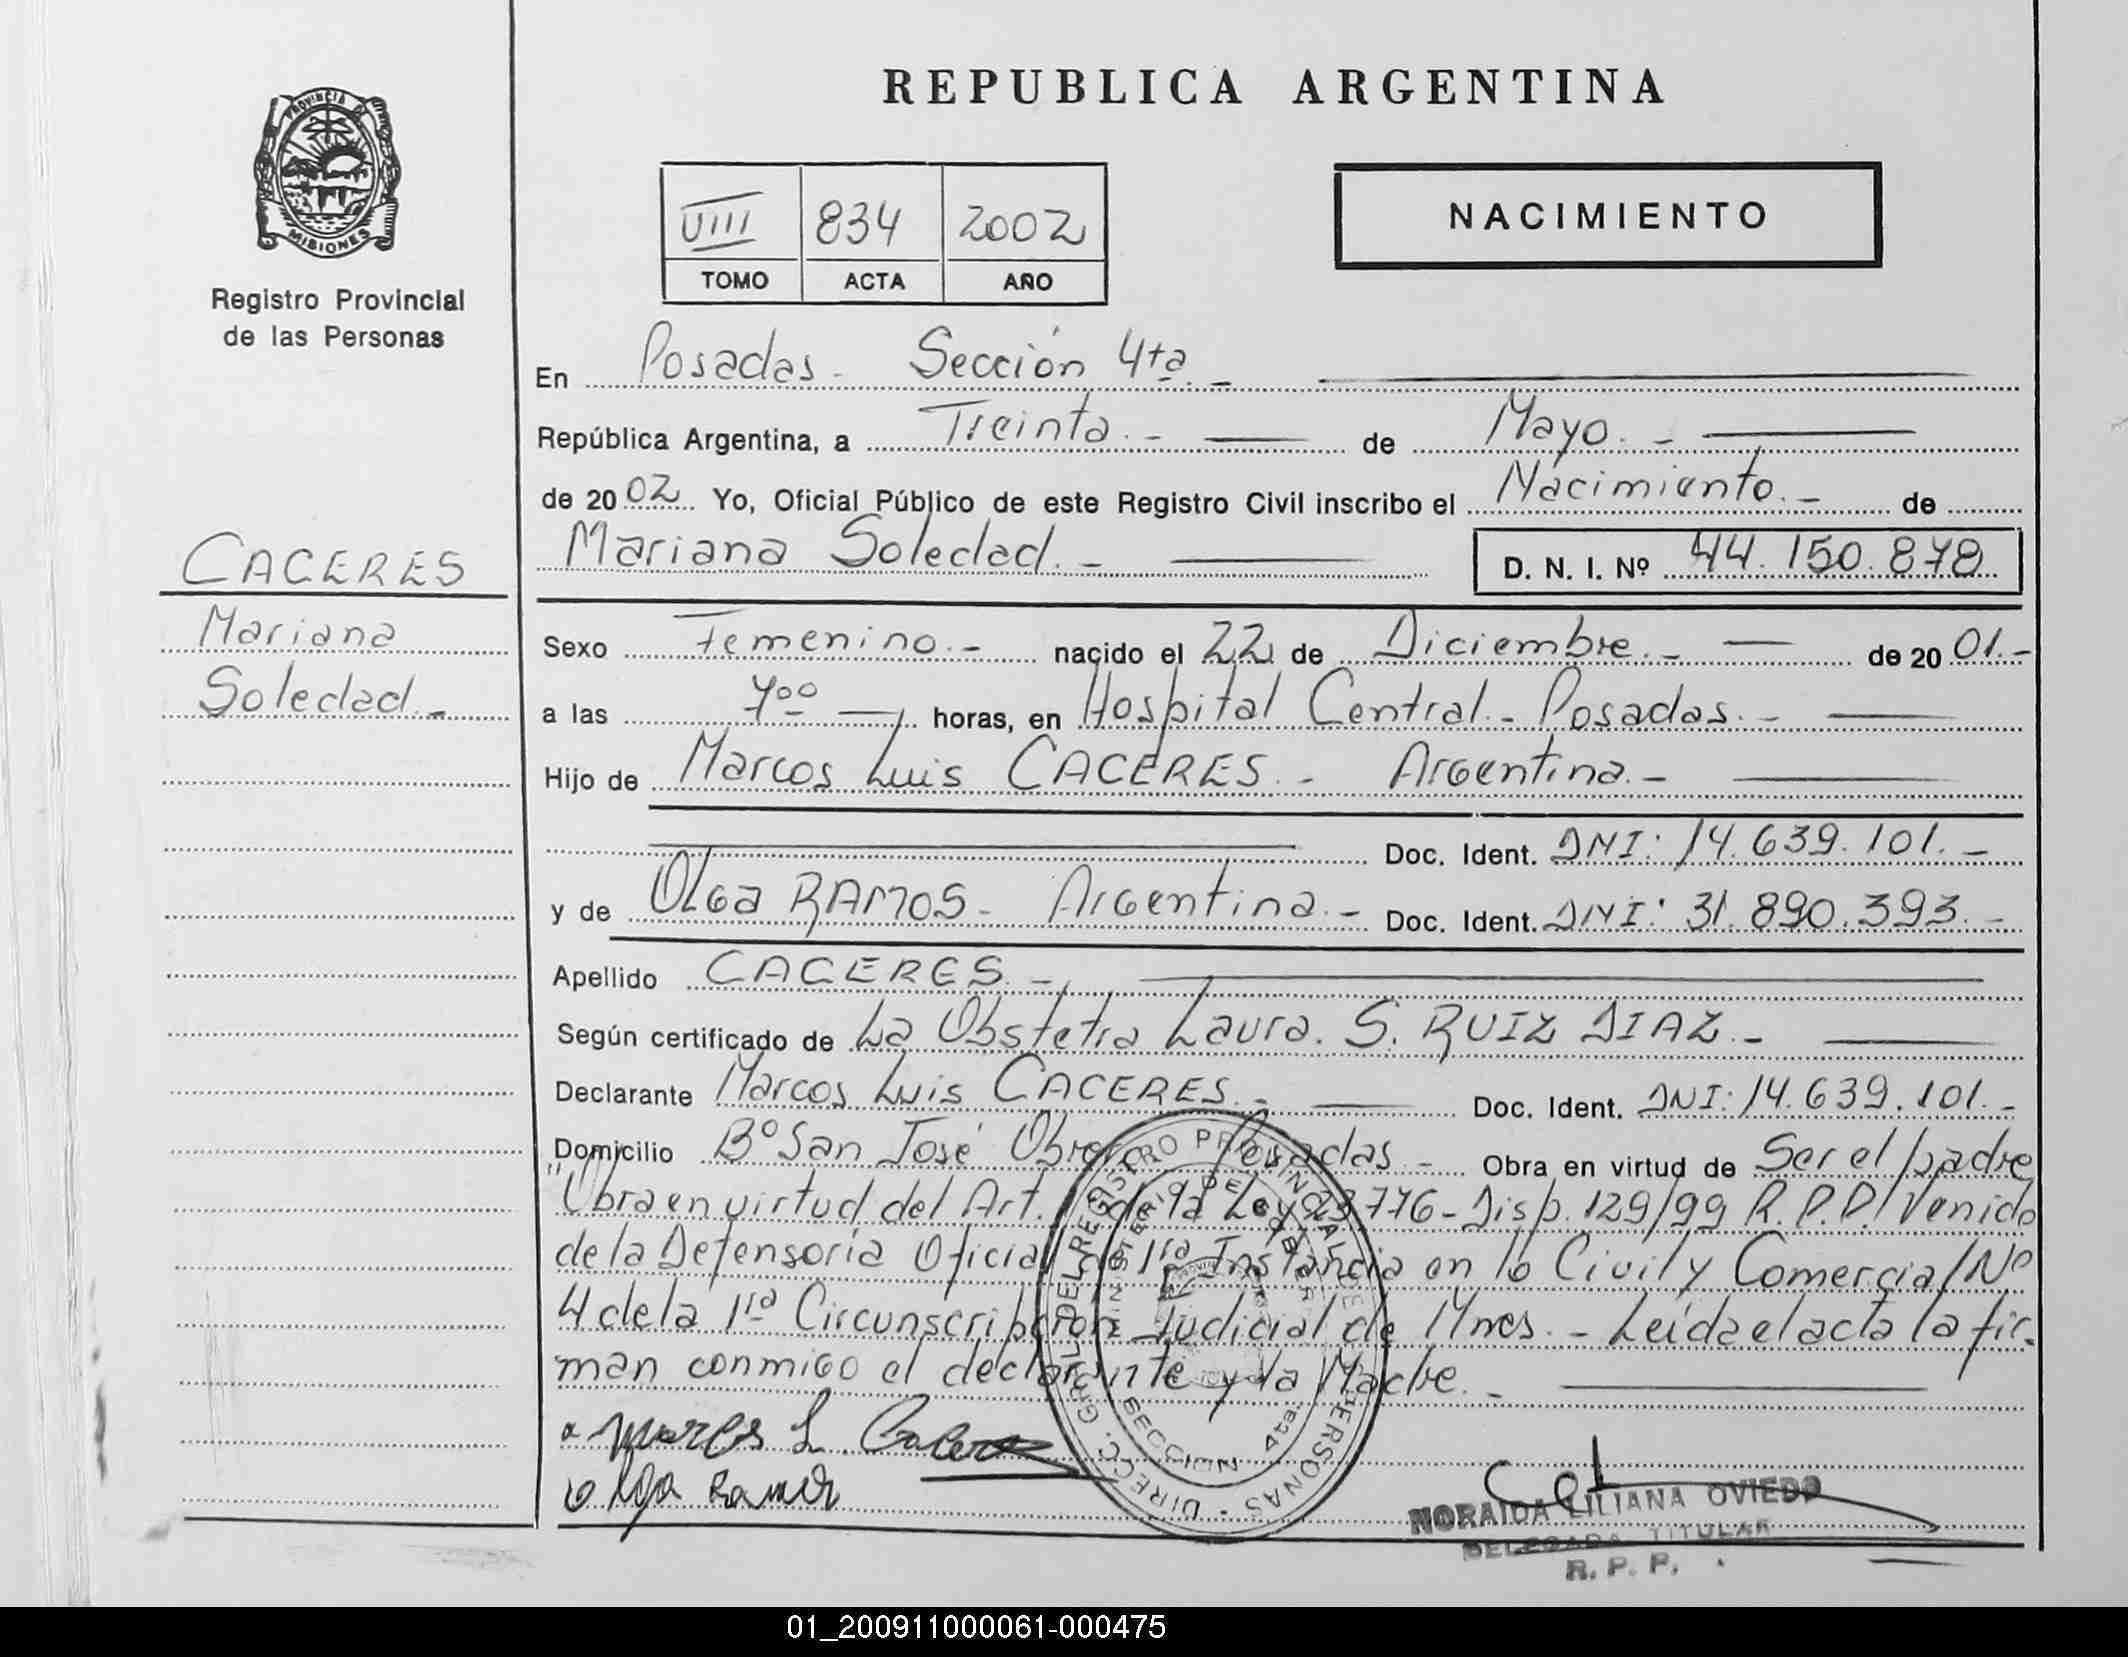 REPUBLICA ARGENTINA
PROVINCIA DE
MISIONES
Registro Provincial
de las Personas
VIII 834 2002
TOMO ACTA AÑO
NACIMIENTO
En Posadas - Sección 4ta. -
República Argentina, a Treinta. - de Mayo. -
de 20 02 Yo, Oficial Público de este Registro Civil inscribo el Nacimiento. - de
Mariana Soledad. - D. N. I. Nº 44.150.878
CACERES
Mariana
Soledad. -
Sexo Femenino. - nacido el 22 de Diciembre. - de 20 01. -
a las 7ºº horas, en Hospital Central - Posadas. -
Hijo de Marcos Luis CACERES. - Argentina. -
Doc. Ident. DNI: 14.639.101. -
y de Olga RAMOS - Argentina. - Doc. Ident. DNI: 31.890.393. -
Apellido CACERES. -
Según certificado de La Obstetra Laura. S. RUIZ DIAZ. -
Declarante Marcos Luis CACERES. - Doc. Ident. DNI: 14.639.101. -
Domicilio Bº San José Obrero Posadas. - Obra en virtud de Ser el padre
"Obra en virtud del Art. de la Ley 23776 - Disp. 129/99 R.P.P./ Venido
de la Defensoría Oficial de 1ra Instancia en lo Civil y Comercial Nº
4 de la 1ra Circunscripción Judicial de Mnes. - Leída el acta la fir-
man conmigo el declarante y la Madre. -
Marcos L. Caceres
Olga Ramos
DIRECC. GRAL. DEL REGISTRO PROVINCIAL DE PERSONAS
MINISTERIO DE GOBIERNO
SECCION 4ta.
NORAIDA LILIANA OVIEDO
DELEGADA TITULAR
R. P. P.
01_200911000061-000475